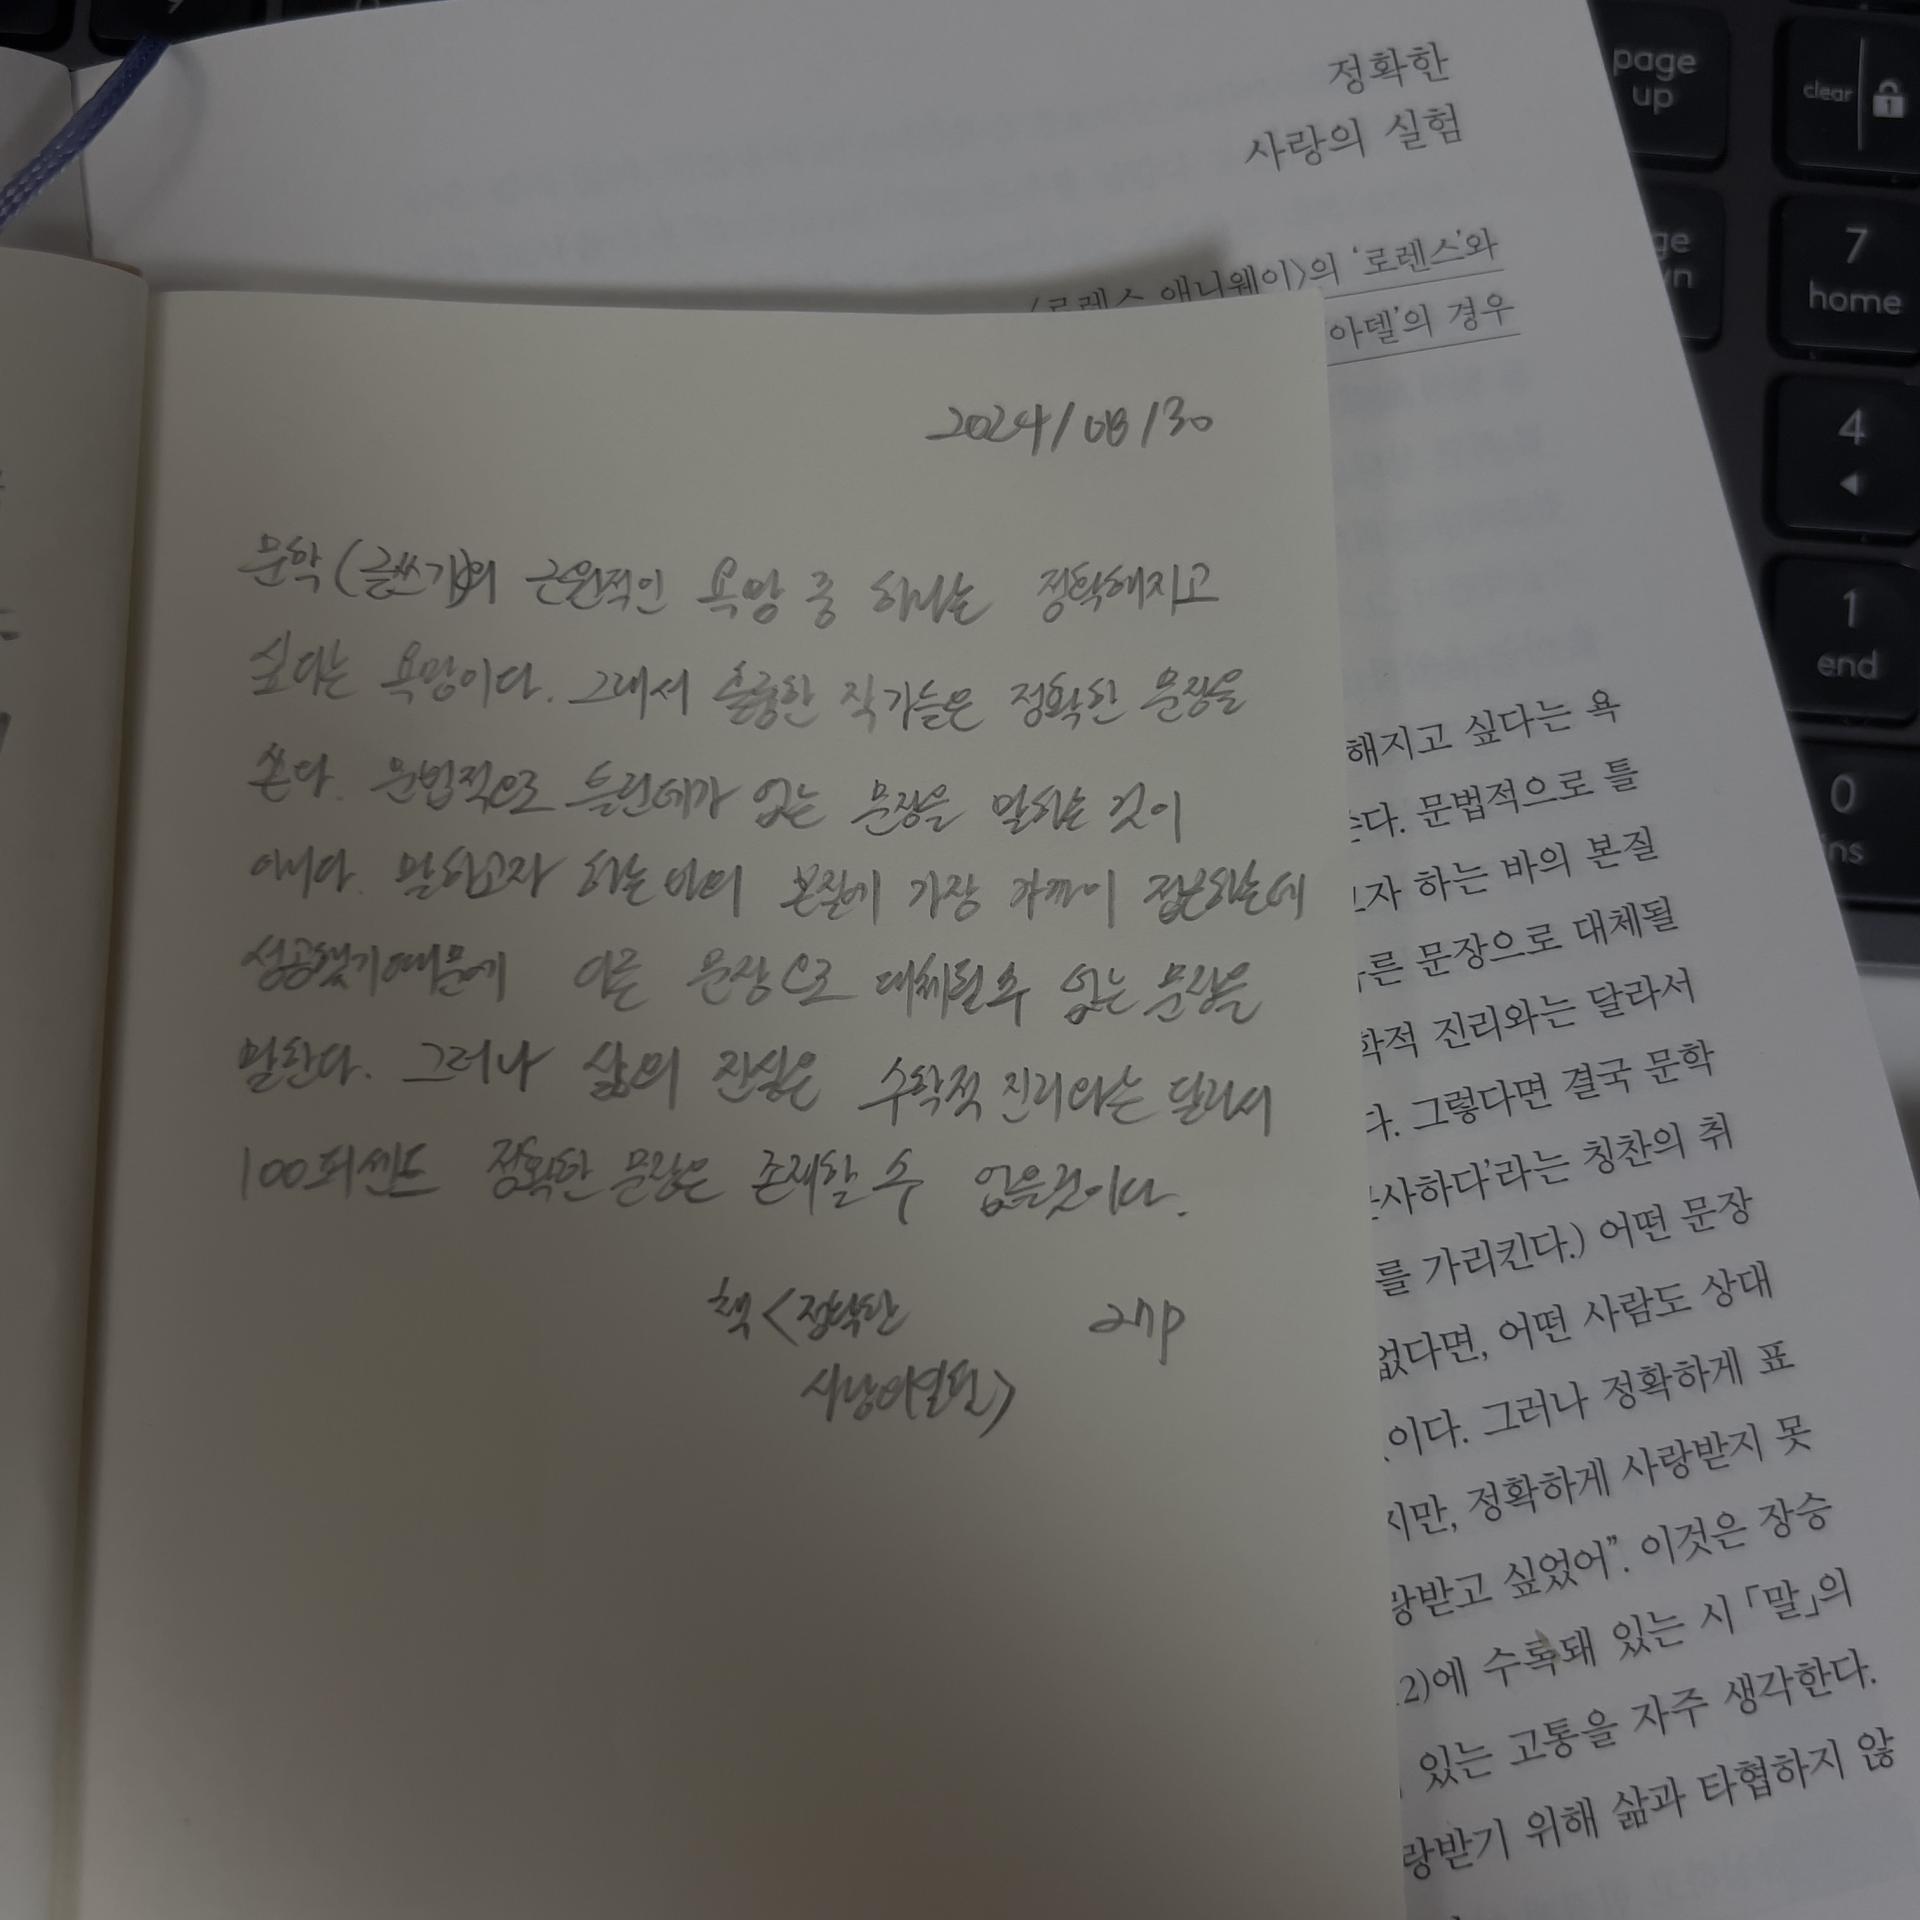 정확한
사랑의 실험
애니웨이〉의 ‘로렌스’와
아델’의 경우
2024/08/30
문학(글쓰기)의 근원적인 욕망 중 하나는 정확해지고
싶다는 욕망이다. 그래서 훌륭한 작가들은 정확한 문장을
쓴다. 문법적으로 틀린데가 없는 문장을 말하는 것이
아니다. 말하고자 하는 바의 본질에 가장 가까이 접근하는데
성공했기때문에 다른 문장으로 대체될 수 없는 문장을
말한다. 그러나 삶의 진실은 수학적 진리와는 달라서
100퍼센트 정확한 문장은 존재할 수 없을것이다.
책<정확한 27p
해지고 싶다는 욕
다. 문법적으로 틀
자 하는 바의 본질
른 문장으로 대체될
학적 진리와는 달라서
다. 그렇다면 결국 문학
사하다’라는 칭찬의 취
를 가리킨다.) 어떤 문장
없다면, 어떤 사람도 상대
이다. 그러나 정확하게 표
지만, 정확하게 사랑받지 못
랑받고 싶었어”. 이것은 장승
2)에 수록돼 있는 시 「말」의
있는 고통을 자주 생각한다.
랑받기 위해 삶과 타협하지 않
page
up
clear
7
home
4
1
end
0